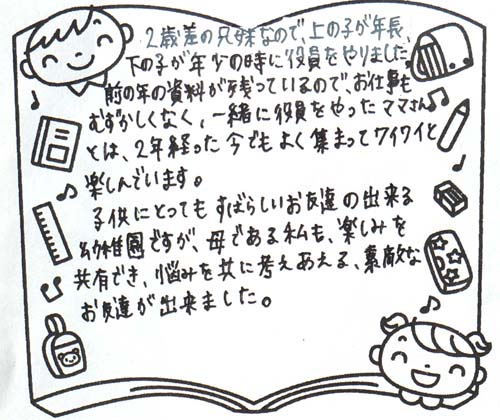 2歳差の兄妹なので、上の子が年長、
下の子が年少の時に役員をやりました。
前の年の資料が残っているので、お仕事も
むずかしくなく、一緒に役員をやったママさん
とは、2年経った今でもよく集まってワイワイと
楽しんでいます。
子供にとってもすばらしいお友達の出来る
幼稚園ですが、母である私も、楽しみを
共有でき、悩みを共に考えあえる、素敵な
お友達が出来ました。